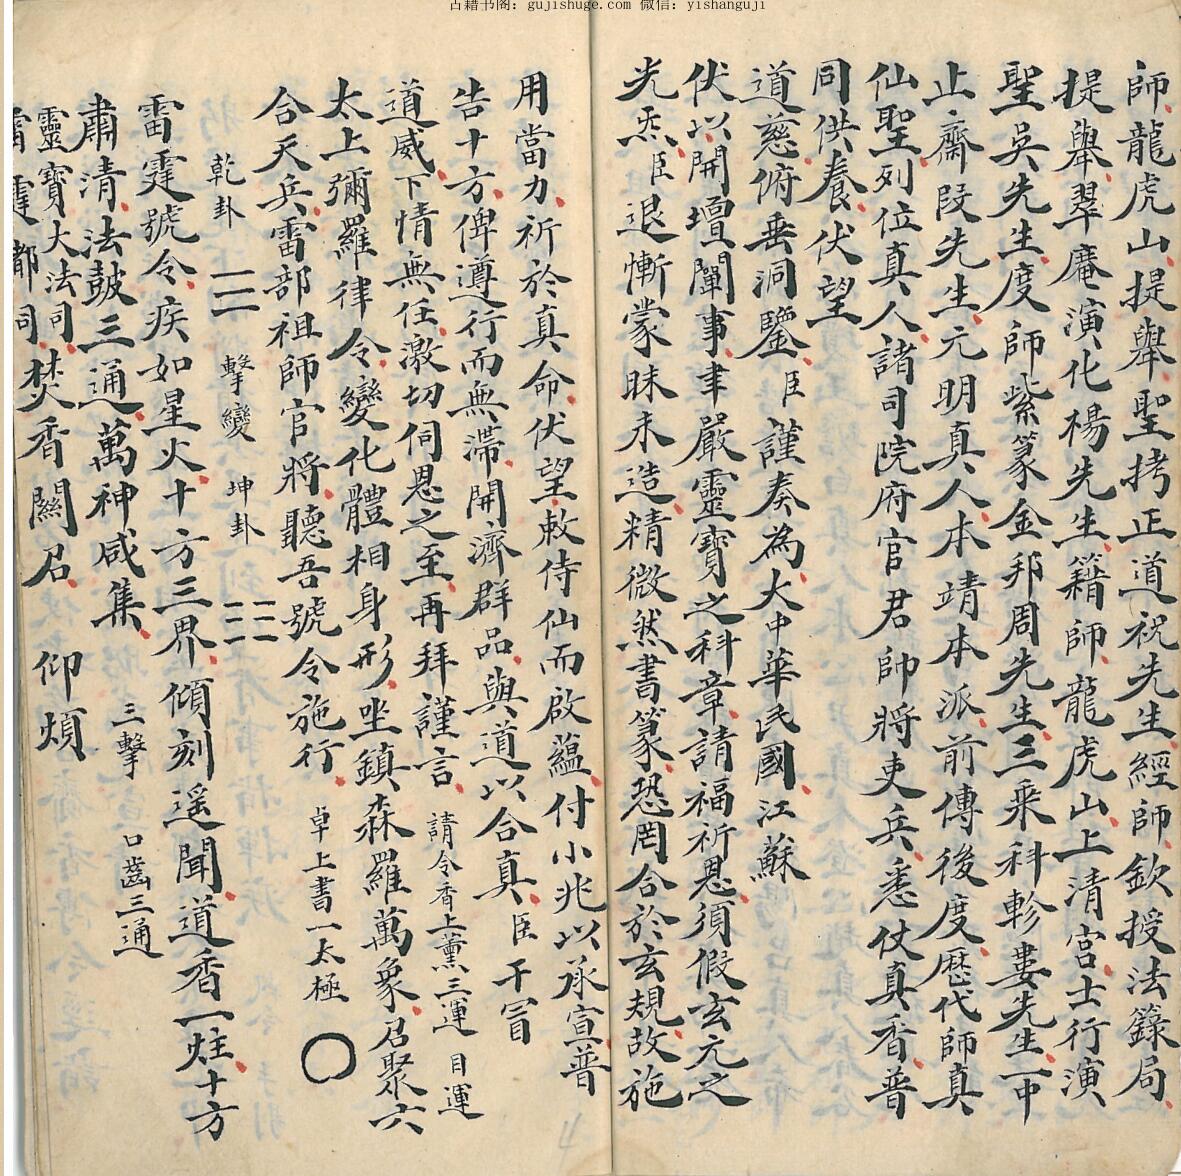 古籍书阁：gujishuge.com 微信：yishanguji
師龍虎山提舉聖拷正道祝先生經師欽授法籙局
提舉翠庵演化楊先生籍師龍虎山上清宮士行演
聖吳先生度師紫篆金邦周先生三乘科軫婁先生中
止齋段先生元明真人本靖本派前傳後度歷代師真
仙聖列位真人諸司院府官君帥將吏兵悉仗真香普
同供養伏望
道慈俯垂洞鑒臣謹奏為大中華民國江蘇
伏以開壇闡事聿嚴靈寶之科章請福祈恩須假玄元之
光炁臣退慚蒙昧未造精微然書篆恐罔合於玄規故施
用當力祈於真命伏望敕侍仙而啟蘊付小兆以承宣普
告十方俾遵行而無滯開濟群品與道以合真臣干冒
道威下情無任激切伺恩之至再拜謹言 請令香上薰三運 目運
太上彌羅律令變化體相身形坐鎮森羅萬象召聚六
合天兵雷部祖師官將聽吾號令施行 卓上書一太極
乾卦 ☰ 擊變 坤卦 ☷
雷霆號令疾如星火十方三界傾刻遥聞道香一炷十方
肅清法鼓三通萬神咸集 三擊 口齒三通
靈寶大法司
雷霆都司 焚香關召 仰煩